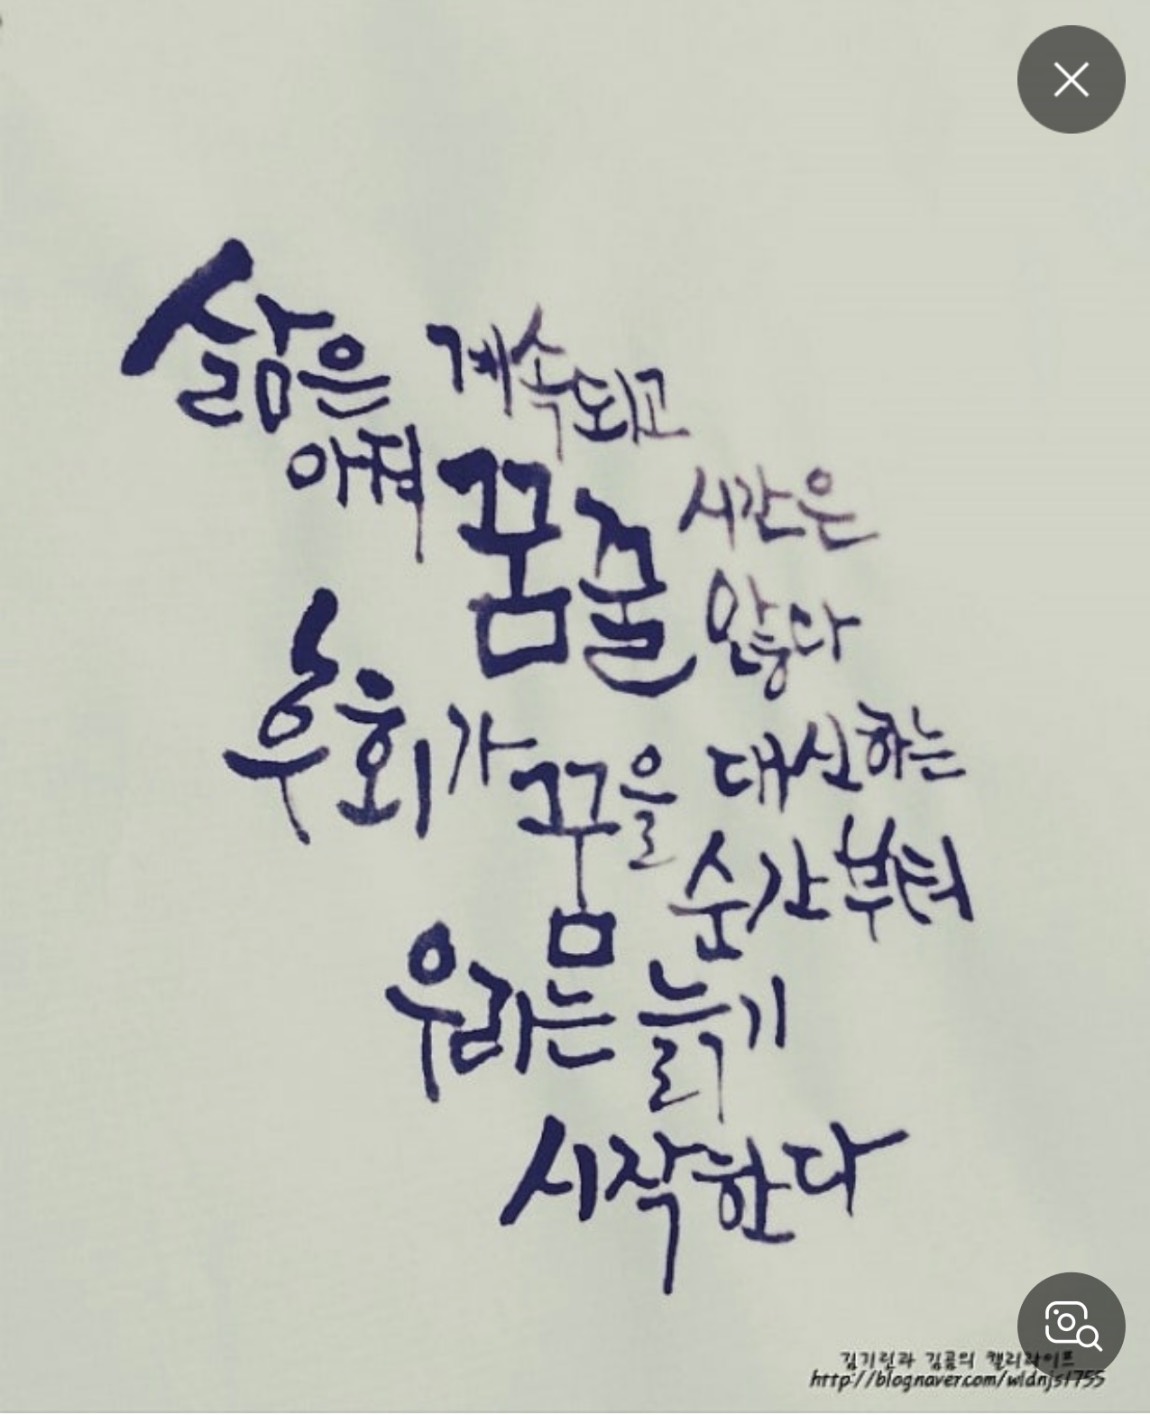 삶은 계속되고
꿈줄 시간은
않다
후회가 꿈을 대신하는
순간부터
우라는 늙기
시작한다
김기린과 김곰의 캘리라이프
http://blognaver.com/wldnjs1755